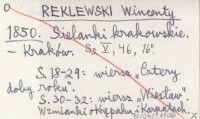 REKLEWSKI Wincenty
1850. Sielanki krakowskie.
– Kraków. Ss V, 46, 16°.
S. 18-29: wiersz „Cztery
doby roku".
S. 30-32: wiersz „Wiesław".
Wzmianki o Krępaku i Karpatach.